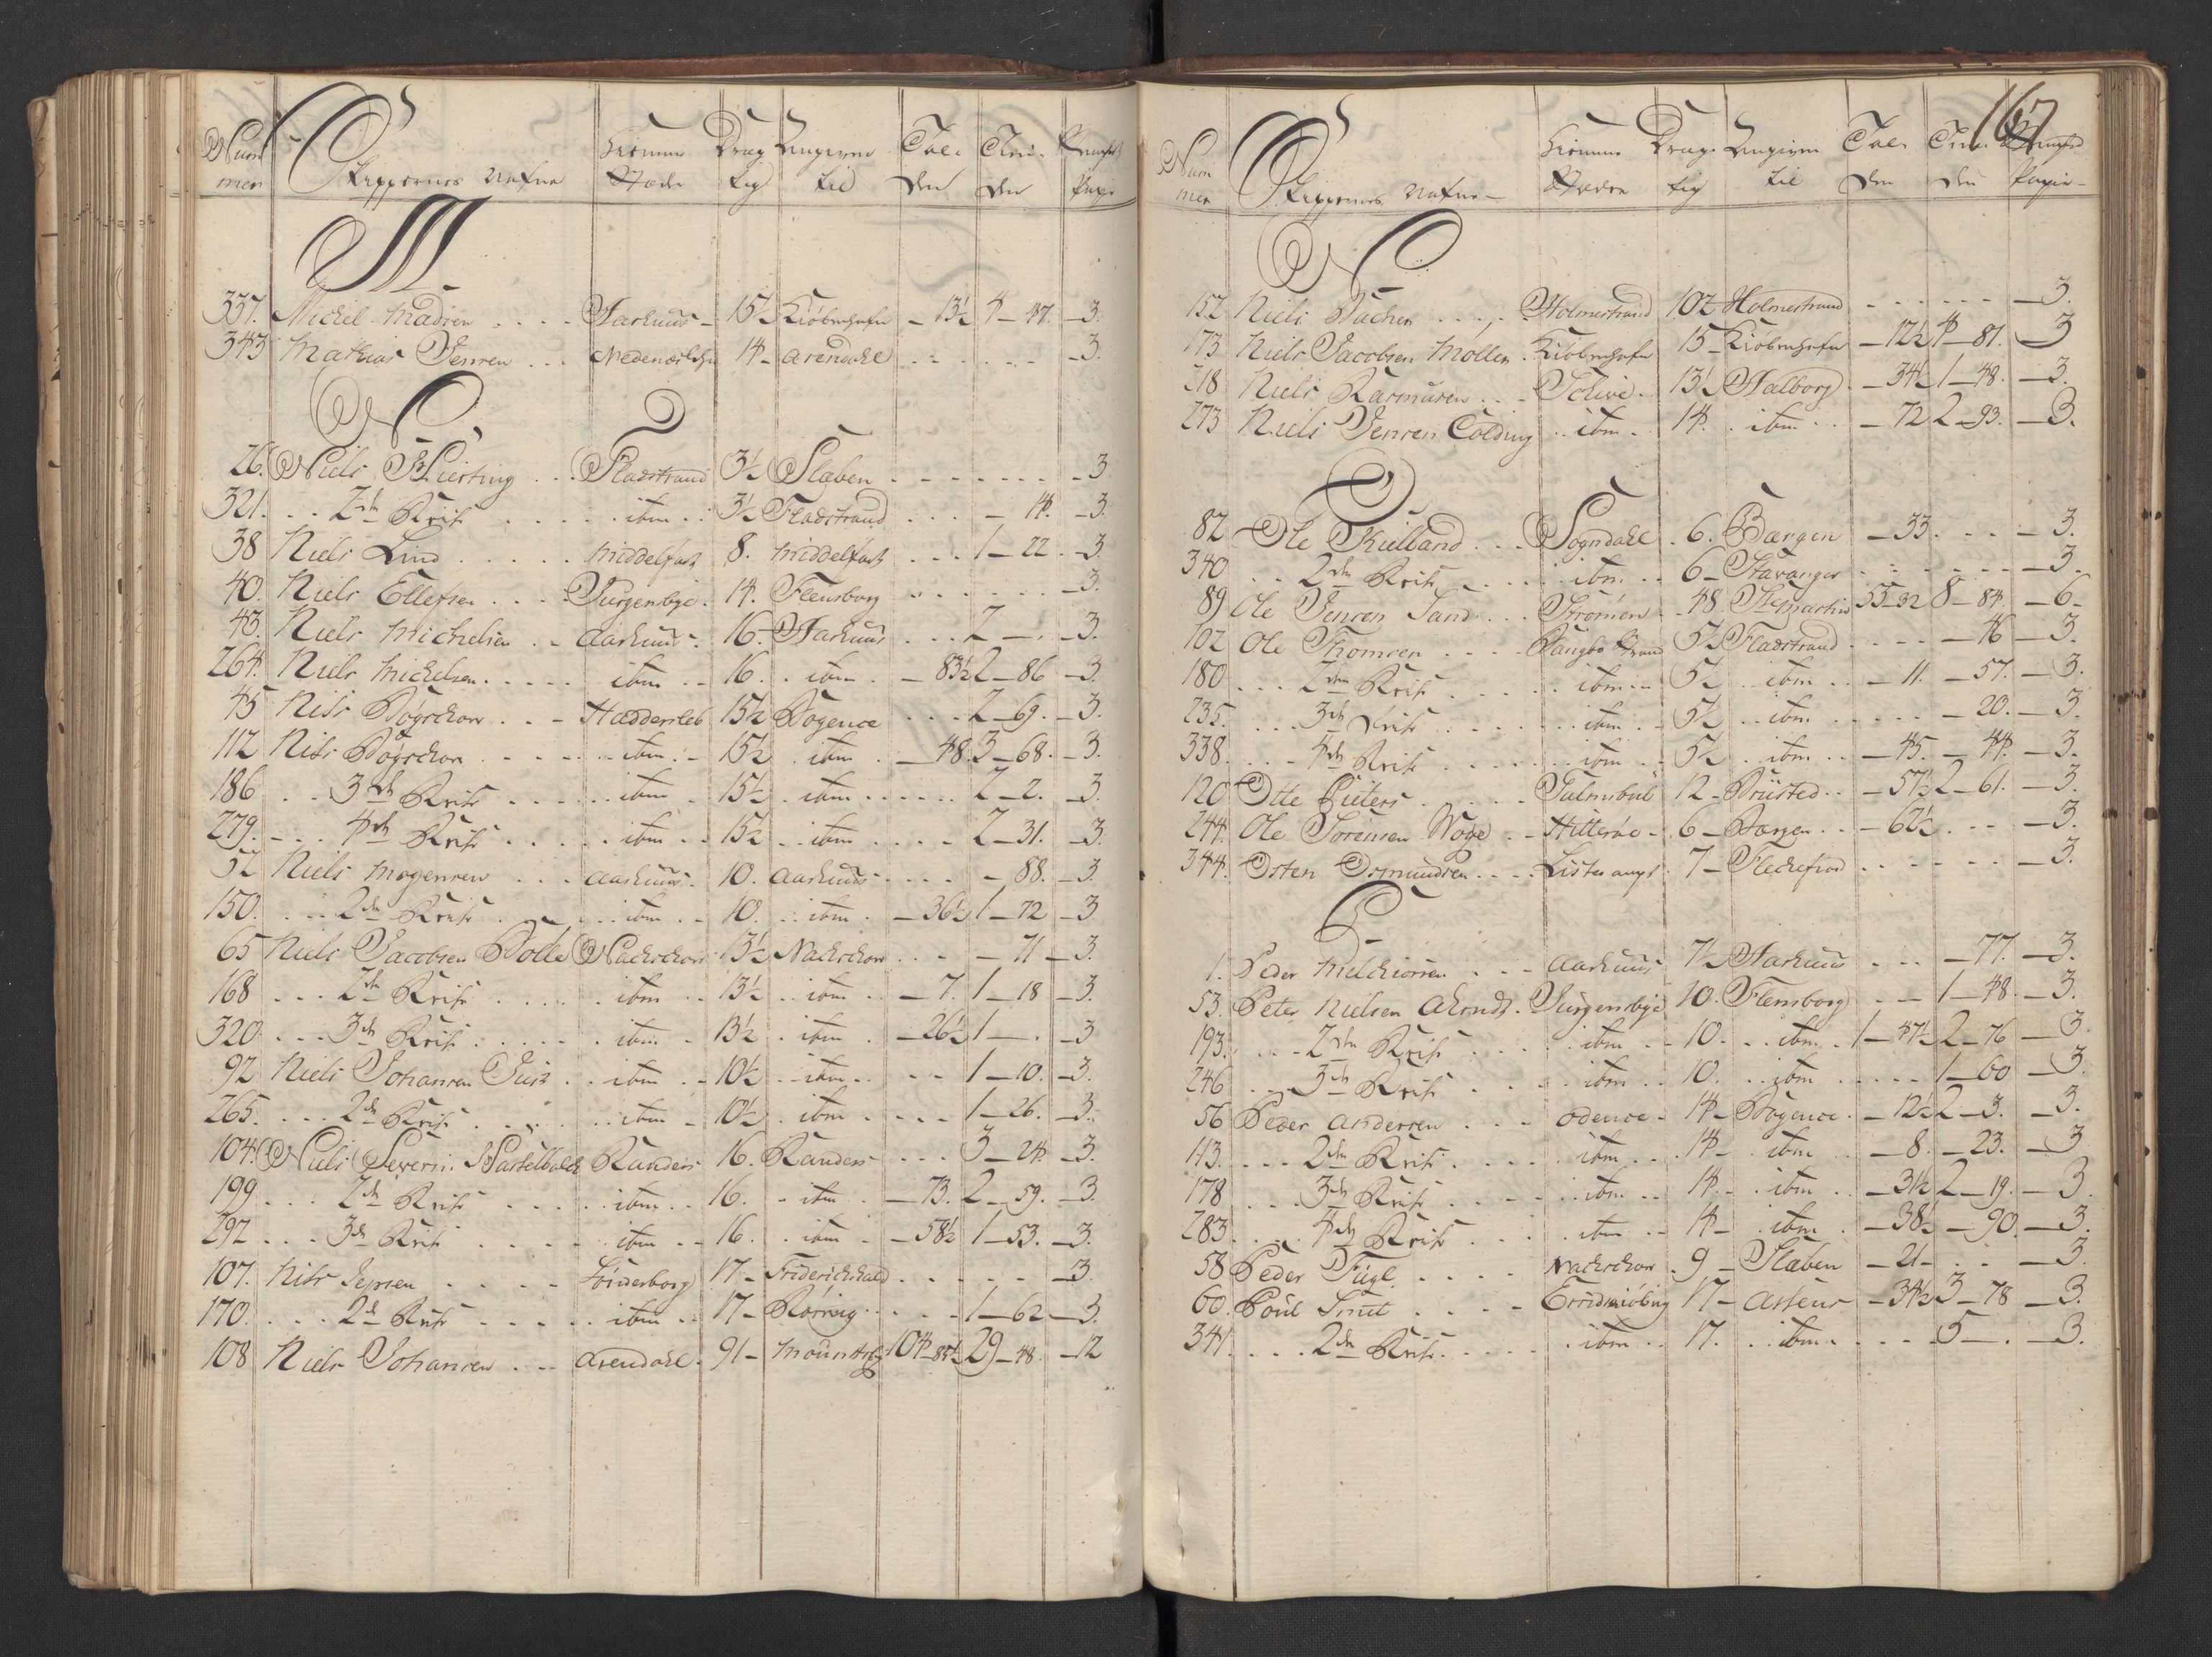 Num Skippernes Nafne Hiemme Dræg Angiven Tol- Told- Stemplet
mer Stæder tig til den den Papir
M
337. Michel Madsen . . . . Aarhuus - 15½ Kiøbenhafn - 13½ 4 - 47. - 3.
343 Mathias Jensen . . . Nedenæs 14 - Arendahl . . . . . . - 3.
N
26. Niels Kierting . . . Fladstrand 3½ Slæben . . . . . . . - 3
321. . . 2de Reise . . . . . ibm . . 3½ Fladstrand . . . - 14. - 3.
38 Niels Lind . . . . . Middelfart 8. Middelfart . . . 1 - 22 . - 3.
40. Niels Ellefsen . . . Jurgensbye . 14. Flensborg . . . . . . - 3.
43. Niels Michelsen . - Aarhuus - 16. Aarhuus . . . 2 - . - 3.
264. Niels Michelsen . . . . . ibm . . 16. . ibm . - 83½ 2 - 86 - 3.
45 Niss Bøyschou . . . - Haddersleb 15½ Bogence . . . . 2 - 69. - 3.
112 Niss Bøyschou . . . - . . ibm . - 15½ . ibm . - 48. 3 - 68. - 3.
186 . . 3de Reise . . . . . ibm . 15½ . ibm . . . . . . 2 - 2. - 3.
279. - . . 4de Reise . . . . . ibm . . 15½ . . ibm . . . . - 2 - 31. - 3.
52 Niels Mogensen . . . Aarhuus . 10. Aarhuus . . . . - 88. - 3
150. . . 2de Reise . . . . ibm . . 10. . . ibm . - 36½ 1 - 72 - 3.
65 Niels Jacobsen Bolle Nachschou 13½ Nachschou . . . - 71 - 3.
168 . . . 2de Reise . . . . ibm . . 13½ . . ibm . - 7. 1 - 18 - 3.
320. . . . 3de Reise . . . . . ibm . 13½ . ibm . - 26½ 1 - . - 3
92 Niels Johansen Just . . ibm . - 10½ . . ibm . . - - 1 - 10. - 3.
265. . . . 2de Reise . . . . . ibm - 10½ . ibm . . . . 1 - 26. - 3.
104. Niels Severin Randers 16. Randers . . . 3 - 24. - 3.
199 . . . 2de Reise . . . . ibm . . 16. . ibm . . - 73. 2 - 59. - 3.
292 . . . 3de Reise . . . . - ibm . . 16. . ibm . - 58½ 1 - 53. - 3.
107. Niss Jepsen . . . . - Sönderborg 17 - Friderichshald . . . . . - 3.
170. . . . 2de Reise . . . . . ibm . . 17 - . . . . 1 - 62 - 3.
108 Niels Johansen . . - Arendahl . 91 - 104 - 87½ 29 - 48. - 12
167
Num Skippernes Nafne - Hiemme Dræg- Angiven Tol- Told- Stemplet
mer Stæder tig til den den Papir -
N
152 Niels Bache . . . Holmestrand 10½ Holmestrand - . . . . . - 3.
173 Niels Jacobsen Møller . Kiøbenhafn 15 - Kiøbenhafn - 12½ 4 - 87. - 3
218 Niels Rasmusen . . - Schive . 13½ Aalborg . - 34½ 1 - 48. - 3.
273 Niels Jensen Colding . . ibm - 14. . ibm . . - 72 2 - 93. - 3.
O
82 Ole Kielland . . . Sogndahl . 6. Bergen - 33. . . - 3.
340 . . 2de Reise . . . . . ibm . . 6 - Stavanger . . . . . - 3.
89 Ole Jensen Sand . . . Strømen . . 48. St: Martin 55 - 32 8 - 84. - 6 -
102 Ole Thomsen . . . - Bangsboe Strand 5½ Fladstrand . . . . - 46 - 3.
180 . . . 2de Reise . . . . . ibm . . 5½ . . ibm . . - 11. - 57. - 3.
235. . . . 3de Reise . . . . . ibm . . 5½ . . ibm . . . . - 20. - 3
338. . . - 4de Reise . . . . . ibm . . 5½ . . ibm . . - 45. - 44. - 3.
120 Otte Pieters . . . . . 12 - Brüsted . . - 57½ 2 - 61. - 3.
244. Ole Sörensen Woge . . Hitterøe - . 6 - Bergen . . - 62½ . . . - 3.
344. Osten Osmundsen . . . . Lister ampt . 7 - Fleckefiord . . . . . . - 3.
P
1. Peder Melchiorsen . . . Aarhuus 7½ Aarhuus . . . - 77. - 3.
53. Peter Nielsen Ahrndt . Jurgensbye 10. Flensborg . . - 1 - 48. - 3.
193. . . . 2de Reise . . . . . ibm . . 10. . . ibm . 1 - 47½ 2 - 76 - 3.
246 . . . 3de Reise . . . . . ibm . . 10. . . ibm . . . . . 1 - 60 - 3.
56 Peder Andersen . . . . Odence . 14 - Bogence . - 12½ 2 - 3. - 3.
113. . . . 2de Reise . . . . . ibm . . . 14 - . ibm . . - 8. - 23. - 3
178 . . . 3de Reise . . . . . ibm . . 14. . . ibm . . - 31½ 2 - 19. - 3.
283. . . . 4de Reise . . . . ibm . . 14 - . ibm . - 38½ - 90. - 3.
58 Peder Fugl . . . . Nachschou . 9 - Slæben - 21 - . . - 3
60. Poul Smit . . . . Erridskiøbing 17 - Assens - 34½ 3 - 78 - 3.
341. . . . 2de Reise . . . . . ibm . . 17. . . ibm . . . . 5 - . - 3.